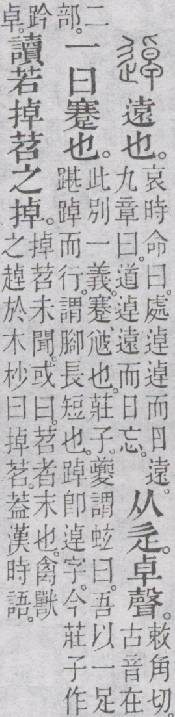 逴遠也。哀時命曰。處逴逴而日遠。九章曰。道逴遠而日忘。从辵。卓聲。敕角切。古音在
二部。一曰蹇也。此別一義。蹇、尥也。莊子。夔謂蚿曰。吾以一足踸踔而行。謂腳長短也。踔卽逴字。今莊子作
趻卓。讀若掉苕之掉。掉苕未聞。或曰。苕者末也。禽獸之趠於木杪曰掉苕。葢漢時語。